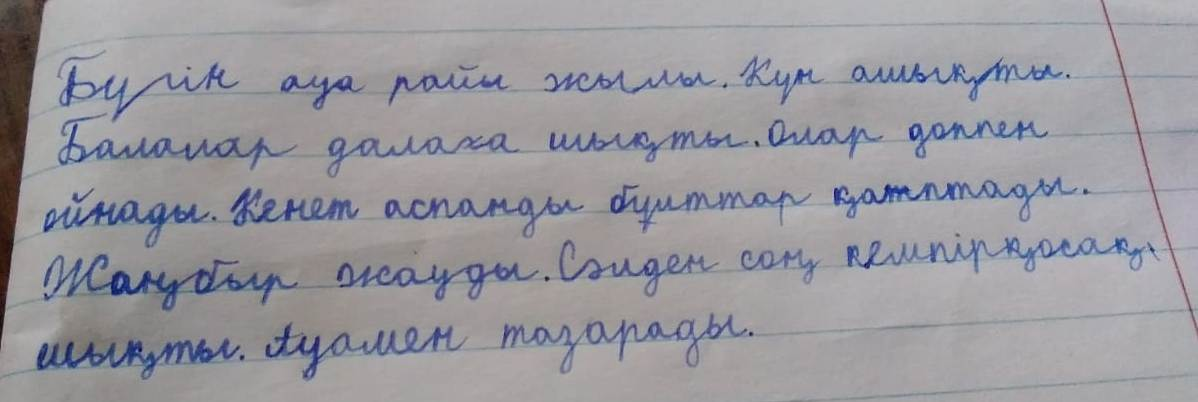 Бүгін ауа райы жылы. Күн ашықты.
Балалар далаха шықты. Олар доппен
ойнады. Кенет аспанды бұлттар қаптады.
Жаңбыр жауды. Сәлден соң кемпірқосақ
шықты. Ауамен тазарады.